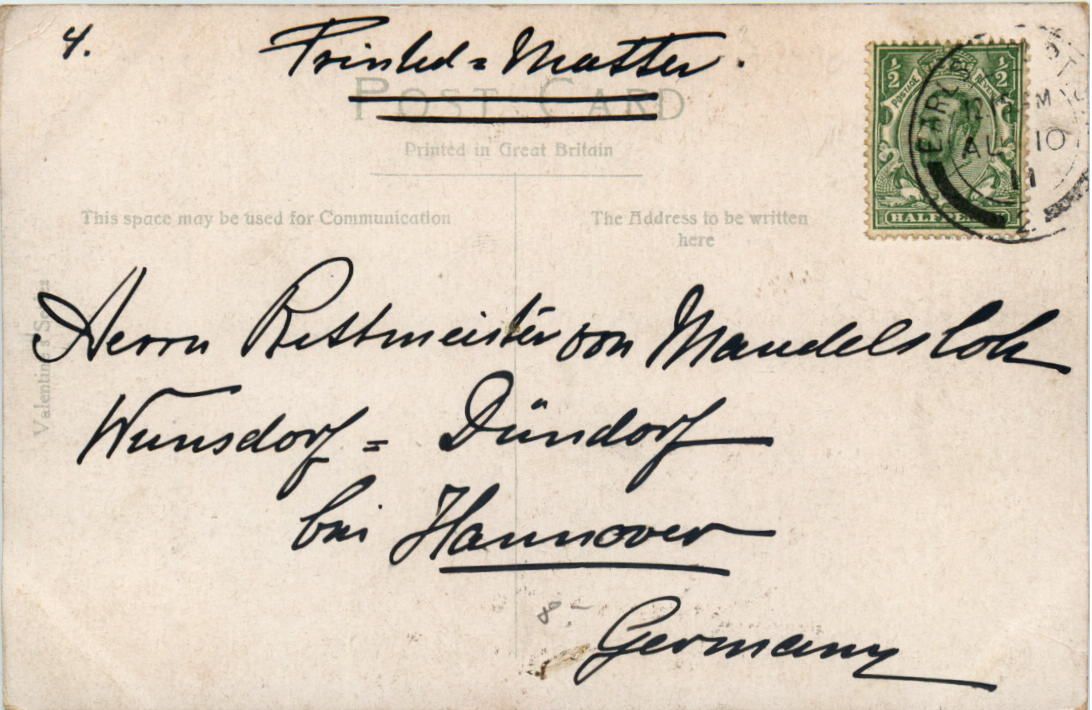 4.
Printed = Matter.
POST CARD
Printed in Great Britain
This space may be used for Communication
The Address to be written
here
½ ½
POSTAGE
HALFPENNY
EARL'S
AU 10
11
Valentine's Series
Herrn Rittmeister von Mandelsloh
Wunsdorf = Dündorf
bei Hannover
8.-
Germany